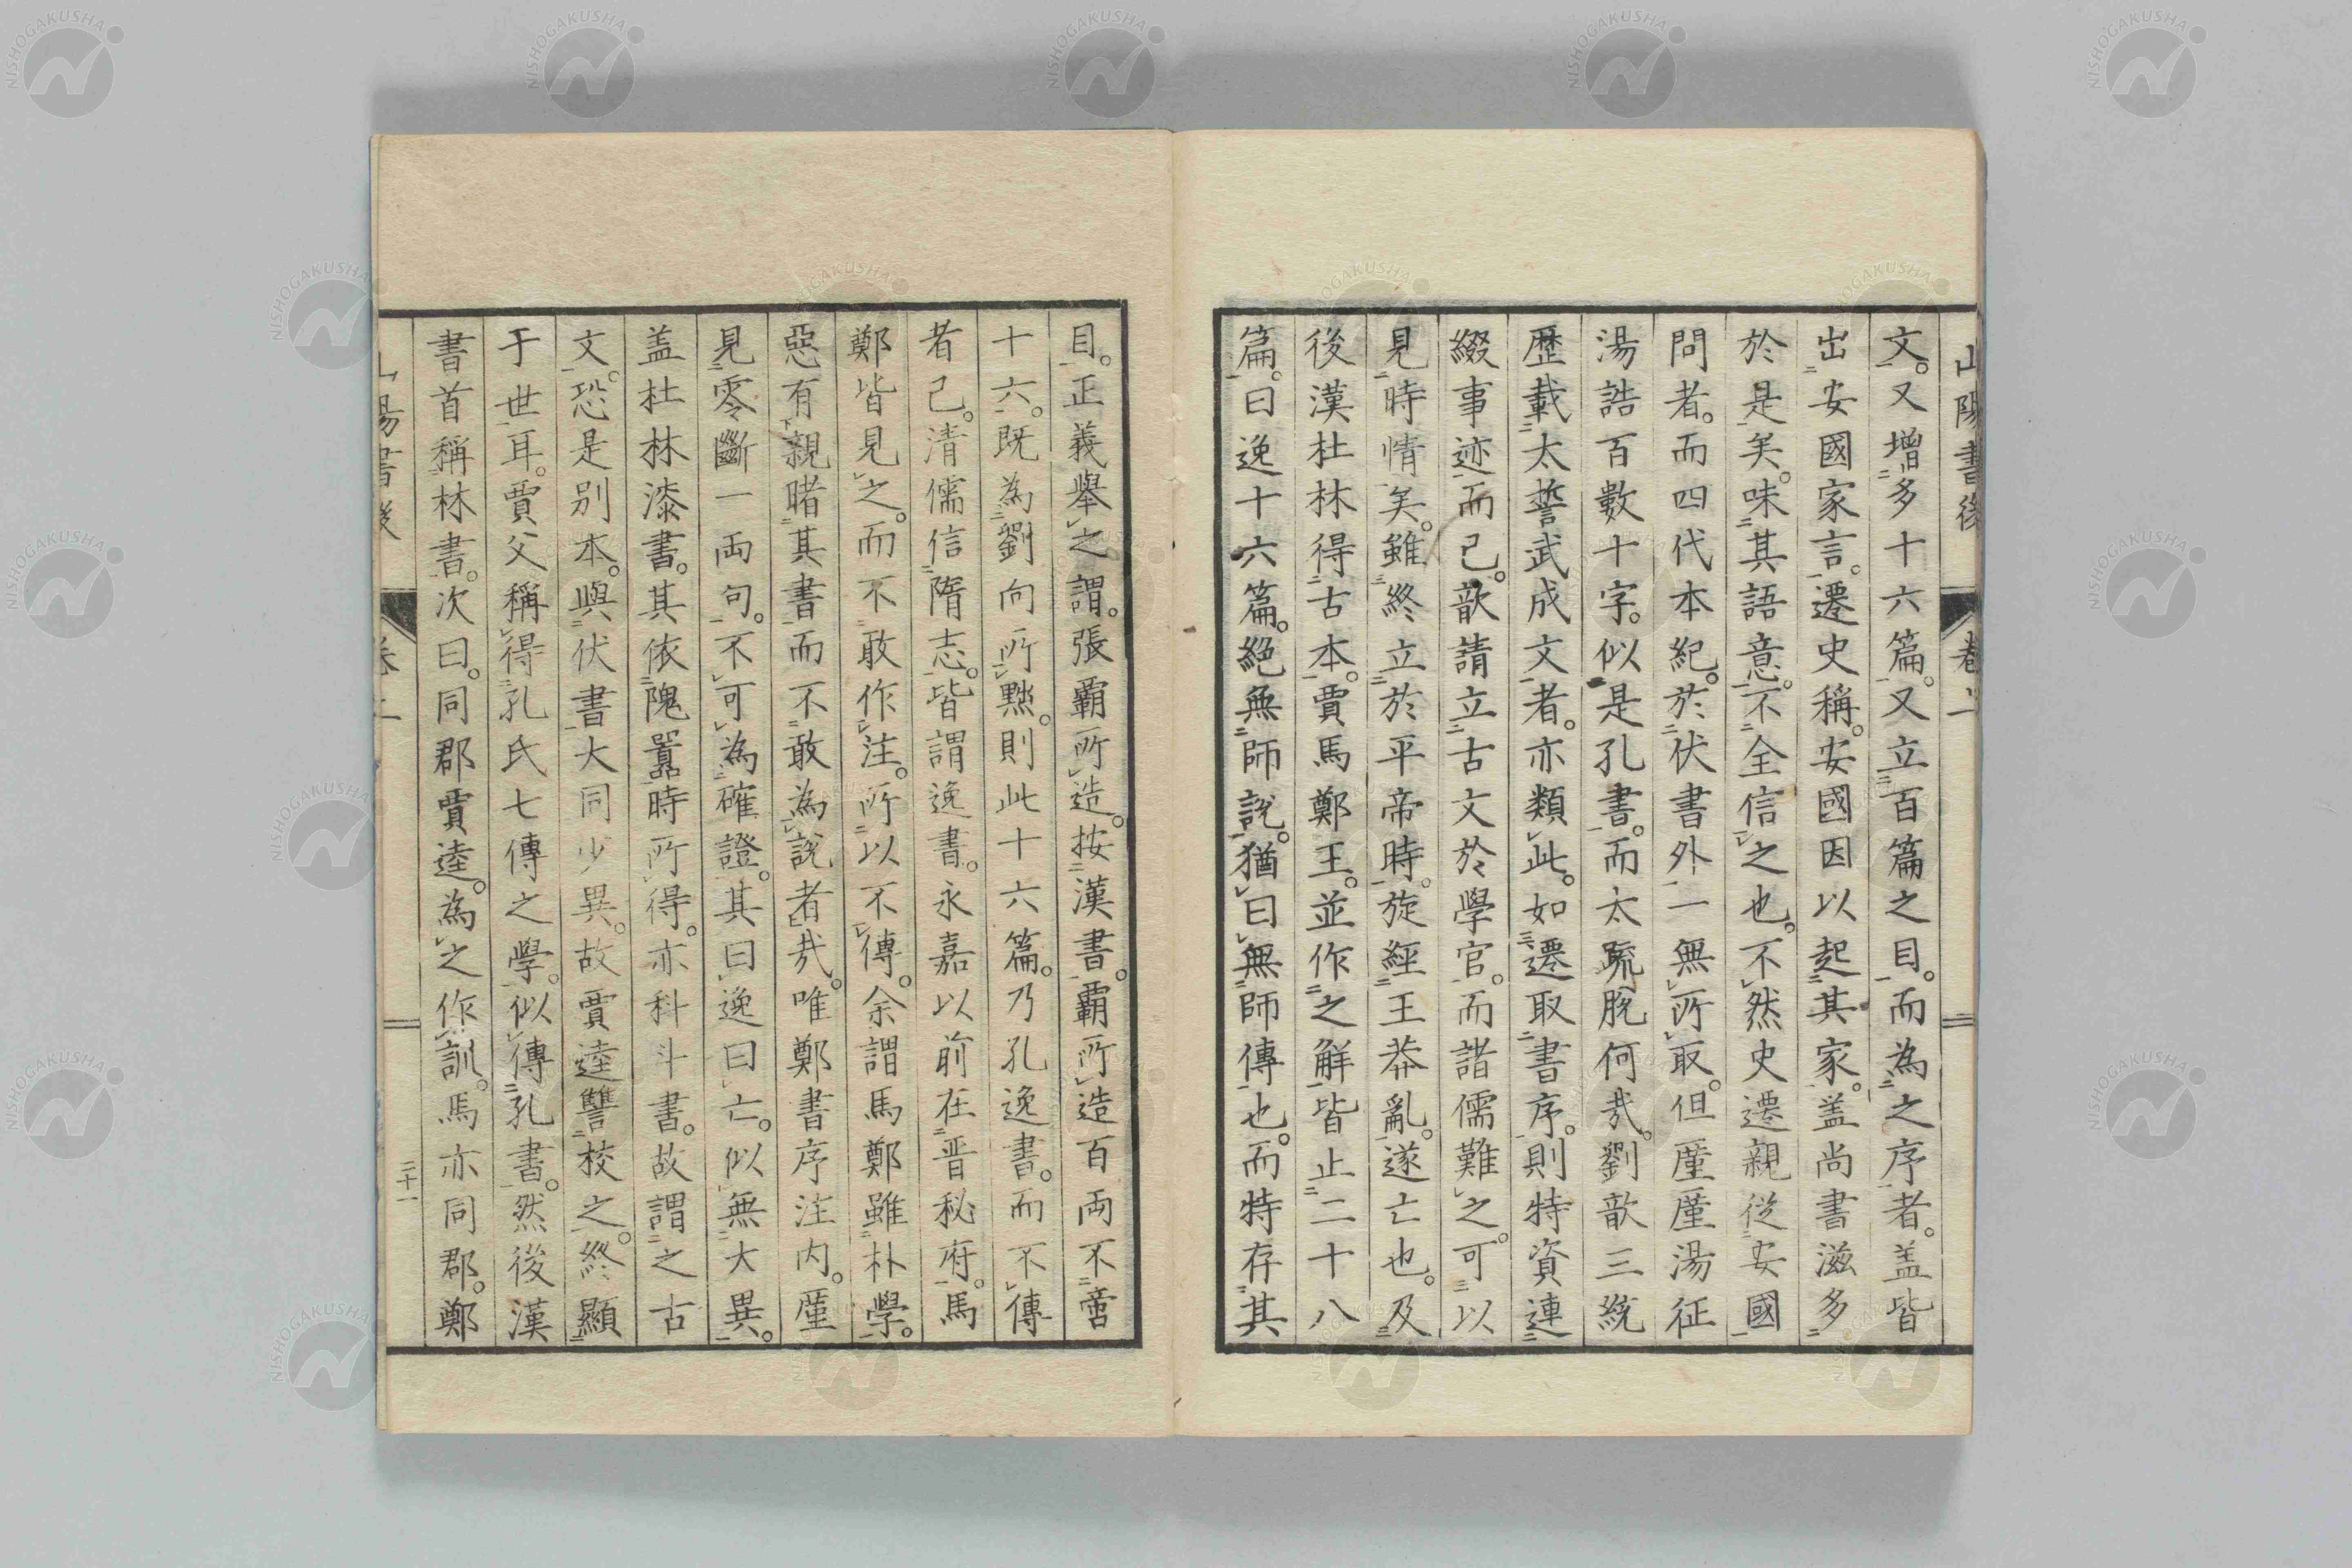 山陽書後 卷上
文。又增多十六篇。又立百篇之目。而為之序者。盖皆
出安國家言。遷史稱。安國因以起其家。盖尚書滋多
於是矣。味其語意。不全信之也。不然史遷親從安國
問者。而四代本紀。於伏書外一無所取。但厪厪湯征
湯誥百數十字。似是孔書。而太疏脫何哉。劉歆三統
歷載太誓武成文者。亦類此。如遷取書序。則特資連
綴事迹而已。歆請立古文於學官。而諸儒難之。可以
見時情矣。雖終立於平帝時。旋經王莽亂。遂亡也。及
後漢杜林得古本。賈馬鄭王。並作之解。皆止二十八
篇。曰逸十六篇。絕無師說。猶曰無師傳也。而特存其
目。正義舉之謂。張霸所造。按漢書。霸所造百両不啻
十六。既為劉向所黜。則此十六篇。乃孔逸書。而不傳
者已。清儒信隋志。皆謂逸書。永嘉以前在晋秘府。馬
鄭皆見之。而不敢作注。所以不傳。余謂馬鄭雖朴學。
惡有親睹其書。而不敢為說者哉。唯鄭書序注內。厪
見零斷一両句。不可為確證。其曰逸曰亡。似無大異。
盖杜林漆書。其依隗囂時所得。亦科斗書。故謂之古
文。恐是別本。與伏書大同少異。故賈逵讐校之。終顯
于世耳。賈父稱得孔氏七傳之學。似傳孔書。然後漢
書首稱林書。次曰。同郡賈逵。為之作訓。馬亦同郡。鄭
山陽書後 卷上 三十一
NISHOGAKUSHA